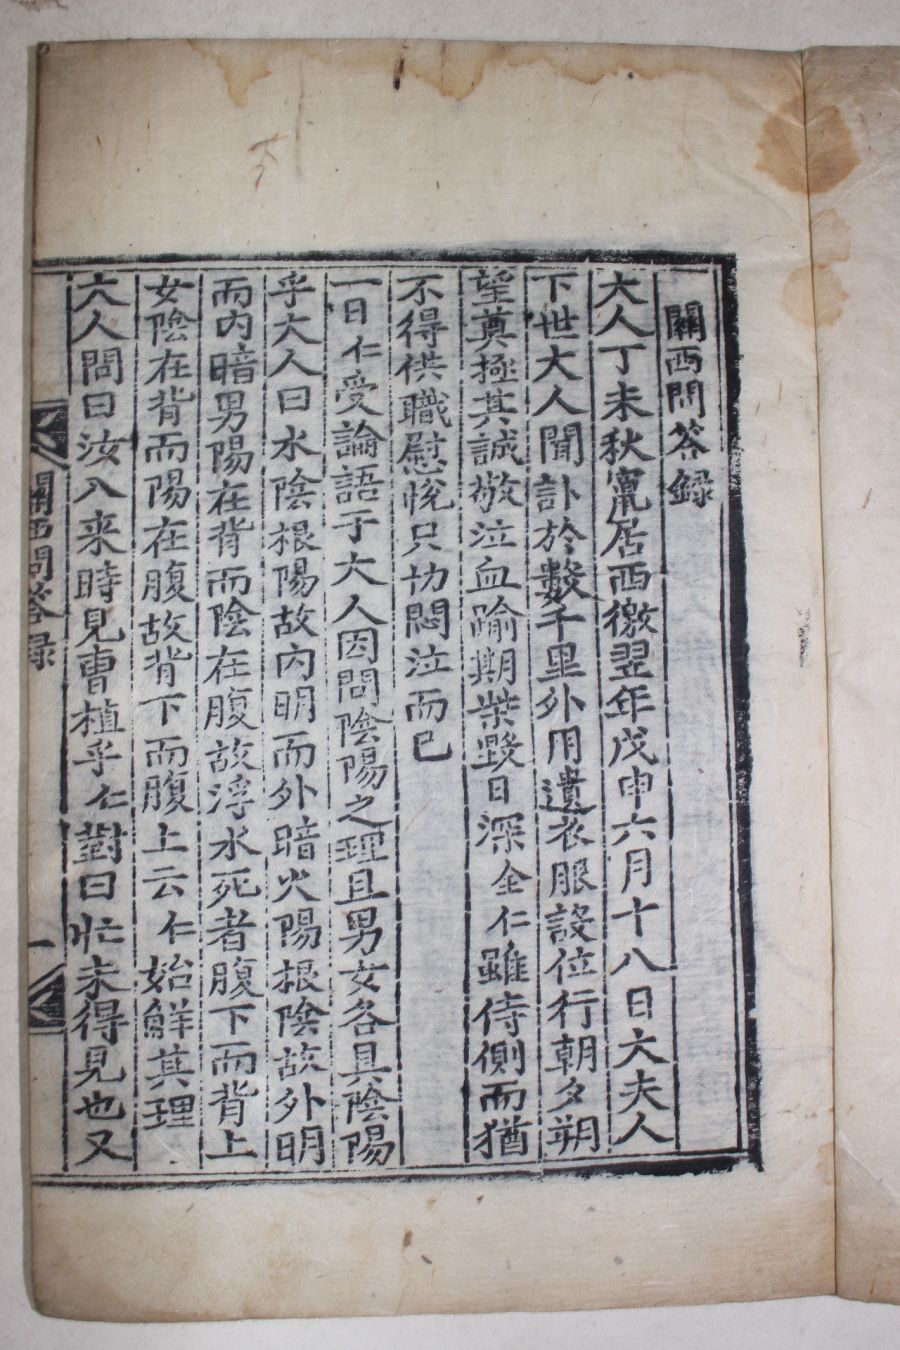 關西問答録
大人丁未秋竄居西徼翌年戊申六月十八日大夫人
下世大人聞訃於數千里外用遺衣服設位行朝夕朔
望奠極其誠敬泣血踰期柴毀日深全仁雖侍側而猶
不得供職慰悅只切悶泣而已
一日仁受論語于大人因問陰陽之理且男女各具陰陽
乎大人曰水陰根陽故內明而外暗火陽根陰故外明
而內暗男陽在背而陰在腹故浮水死者腹下而背上
女陰在背而陽在腹故背下而腹上云仁始觧其理
大人問曰汝入来時見曺植乎仁對曰忙未得見也又
關西問答録
一